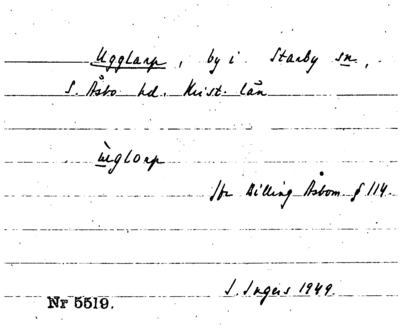 Ugglarp, by i Starby sn,
S. Åsbo hd. Krist. län
ùglorp
Jfr Billing Åsbom. § 114.
I. Ingers 1949
Nr 5519.